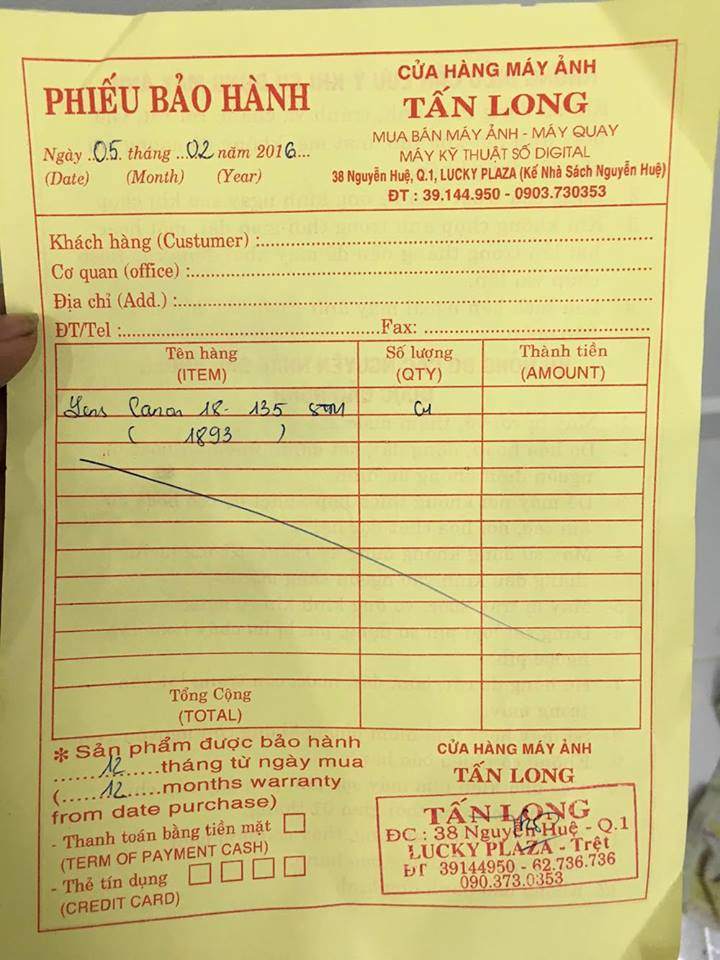 PHIẾU BẢO HÀNH
Ngày ..05. tháng ..02 năm 2016....
(Date) (Month) (Year)
CỬA HÀNG MÁY ẢNH
TẤN LONG
MUA BÁN MÁY ẢNH - MÁY QUAY
MÁY KỸ THUẬT SỐ DIGITAL
38 Nguyễn Huệ, Q.1, LUCKY PLAZA (Kế Nhà Sách Nguyễn Huệ)
ĐT : 39.144.950 - 0903.730353
Khách hàng (Custumer) :
Cơ quan (office) :
Địa chỉ (Add.) :
ĐT/Tel : Fax:
Tên hàng Số lượng Thành tiền
(ITEM) (QTY) (AMOUNT)
Lens Canon 18-135 STM
( 1893 )
Tổng Cộng
(TOTAL)
* Sản phẩm được bảo hành
......12......tháng từ ngày mua
(......12......months warranty
from date purchase)
- Thanh toán bằng tiền mặt
(TERM OF PAYMENT CASH)
- Thẻ tín dụng
(CREDIT CARD)
CỬA HÀNG MÁY ẢNH
TẤN LONG
TẤN LONG
ĐC : 38 Nguyễn Huệ - Q.1
LUCKY PLAZA - Trệt
ĐT 39144950 - 62.736.736
090.373.0353